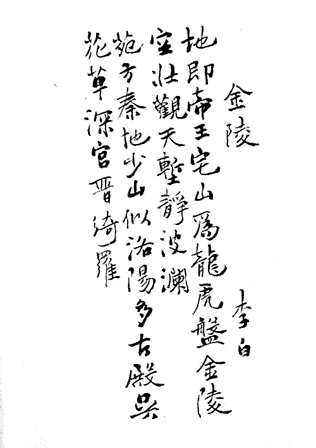 金陵 李白
地即帝王宅山為龍虎盤金陵
空壯觀天塹靜波瀾
苑方秦地少山似洛陽多古殿吳
花草深宮晉綺羅